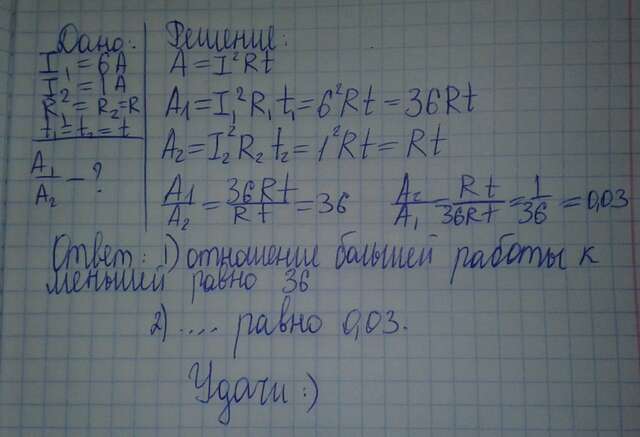 Дано:
I₁ = 6 А
I₂ = 1 А
R₁ = R₂ = R
t₁ = t₂ = t
A₁/A₂ - ?
Решение:
A = I²Rt
A₁ = I₁²R₁t₁ = 6²Rt = 36Rt
A₂ = I₂²R₂t₂ = 1²Rt = Rt
A₁/A₂ = 36Rt/Rt = 36 A₂/A₁ = Rt/36Rt = 1/36 = 0,03
Ответ: 1) отношение большей работы к
меньшей равно 36
2) .... равно 0,03.
Удачи :)